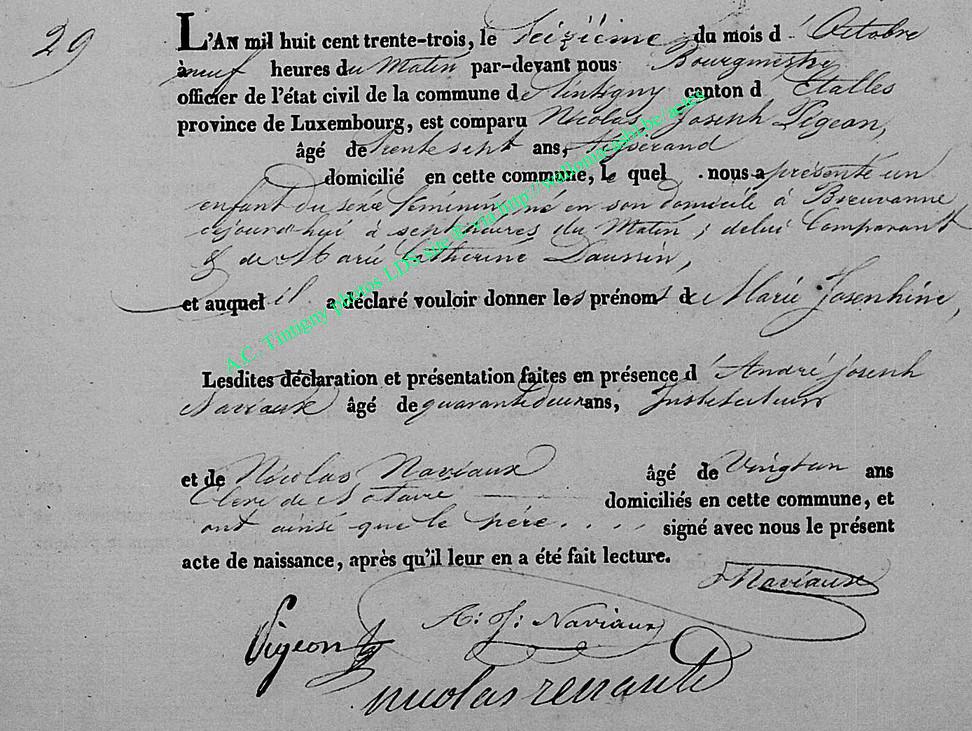 29
L'AN mil huit cent trente-trois, le Seizième du mois d' Octobre
à neuf heures du Matin par-devant nous Bourgmestre
officier de l'état civil de la commune de Tintigny canton d' Etalles
province de Luxembourg, est comparu Nicolas Joseph Pigeon,
âgé de trente sept ans, tisserand
domicilié en cette commune, Le quel nous a présenté un
enfant du sexe féminin, né en son domicile à Breuvanne,
cejourd'hui à sept heures du Matin, de lui Comparant
& de Marie Catherine Daussin,
et auquel il a déclaré vouloir donner les prénoms de Marie Josephine,
Lesdites déclaration et présentation faites en présence d' André Joseph
Naviaux âgé de quarante deux ans, Instituteur
et de Nicolas Naviaux âgé de Vingt un ans
Clerc de Notaire domiciliés en cette commune, et
ont ainsi que le père .... signé avec nous le présent
acte de naissance, après qu'il leur en a été fait lecture.
Naviaux
A: J: Naviaux
Pigeon
nicolas
A.C. Tintigny photos LDS site &via http://wallonia.gahi.be/actes